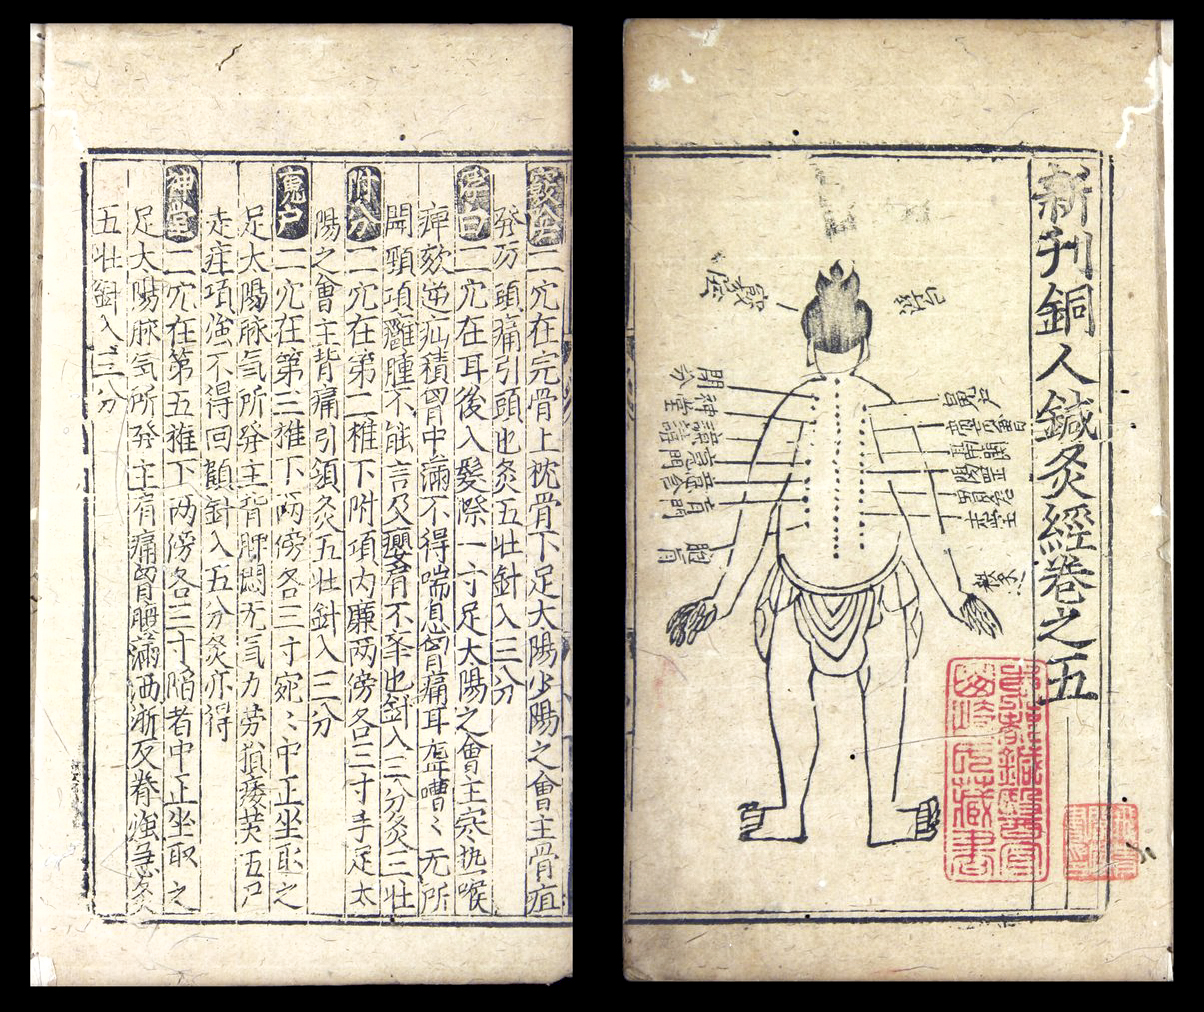 新刊銅人鍼灸經卷之五
竅陰
魂户
神堂
譩譆
胞肓
竅陰二穴在完骨上枕骨下足大陽少陽之會主骨疽
發厉頭痛引頭也灸五壮針入三分
浮白二穴在耳後入髮際一寸足太陽之會主寒热喉
痺欬逆疝積胷中滿不得喘息胷痛耳聾嘈〻无所
聞頸項癰腫不能言及癭肩不举也針入三分灸三壮
附分二穴在第二椎下附項内廉两傍各三寸手足太
陽之會主背痛引頷灸五壮針入三分
魂户二穴在第三椎下两傍各三寸宛〻中正坐取之
足大陽脉氣所發主背胛悶无氣力勞損痿黄五尸
走疰項強不得回顧針入五分灸亦得
神堂二穴在第五椎下两傍各三寸陷者中正坐取之
足大陽脉氣所發主肩痛胷腹滿洒淅反脊強急灸
五壮針入三分